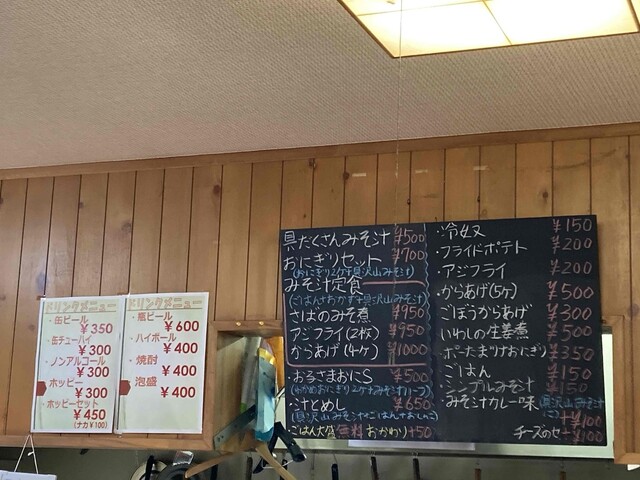 ドリンクメニュー
・缶ビール
¥350
・缶チューハイ
¥300
ノンアルコール
¥300
ホッピー
¥300
ホッピーセット
¥450
(ナカ¥100)
ドリンクメニュー
・瓶ビール
¥600
・ハイボール
¥400
・焼酎
¥400
・泡盛
¥400
具だくさんみそ汁 ¥500
おにぎりセット ¥700
(おにぎり2ケ+具沢山みそ汁)
みそ汁定食
(ごはん+おかず+具沢山みそ汁)
さばのみそ煮 ¥950
アジフライ(2枚) ¥950
からあげ(4ケ) ¥1000
お子さまおにS ¥500
汁とめし ¥650
ごはん大盛無料 おかわり+50
・冷奴 ¥150
・フライドポテト ¥200
・アジフライ ¥200
・からあげ(5ケ) ¥500
・ごぼうからあげ ¥300
・いわしの生姜煮 ¥500
・ポーたまりけおにぎり ¥350
・ごはん ¥150
・シンプルみそ汁 ¥150
・みそ汁カレー味 (具沢山みそ汁
に) +¥100
チーズのせ ¥100